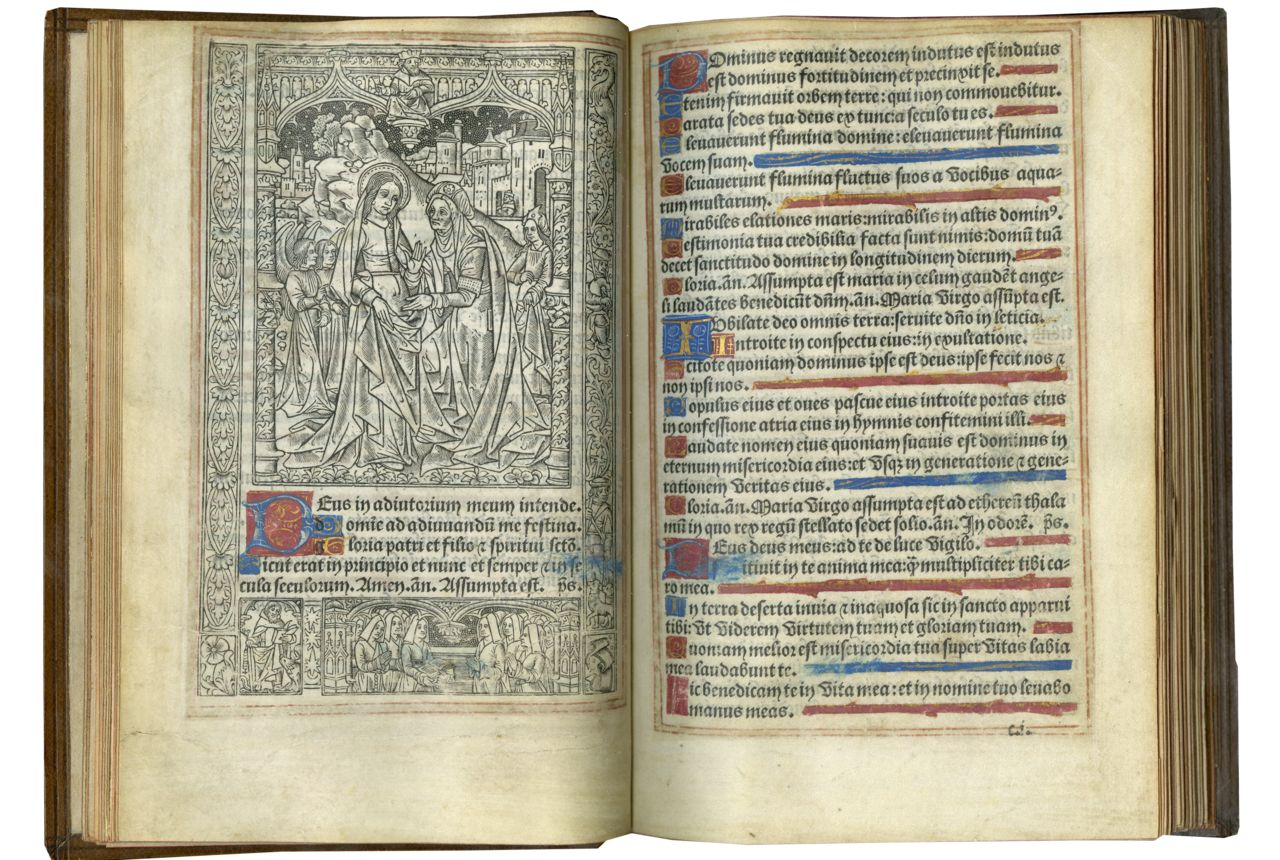 DEus in adiutorium meum intende.
domie ad adiuuandū me festina.
gloria patri et filio ⁊ spiritui sctō.
Sicut erat in principio et nunc et semper ⁊ in se
cula seculorum. Amen. an. Assumpta est. ps.
DOminus regnauit decorem indutus est indutus
est dominus fortitudinem et precinxit se.
Etenim firmauit orbem terre: qui non commouebitur.
Parata sedes tua deus ex tunc: a seculo tu es.
Eleuauerunt flumina domine: eleuauerunt flumina
vocem suam.
Eleuauerunt flumina fluctus suos a vocibus aqua-
rum multarum.
Mirabiles elationes maris: mirabilis in altis dominꝰ.
Testimonia tua credibilia facta sunt nimis: domū tuā
decet sanctitudo domine in longitudinem dierum.
Gloria. an. Assumpta est maria in celum gaudēt ange-
li laudātes benedicūt dn̄m. an. Maria virgo assūpta est.
IUbilate deo omnis terra: seruite dn̄o in leticia.
Introite in conspectu eius: in exultatione.
Scitote quoniam dominus ipse est deus: ipse fecit nos ⁊
non ipsi nos.
Populus eius et oues pascue eius introite portas eius
in confessione atria eius in hymnis confitemini illi.
Laudate nomen eius quoniam suauis est dominus in
eternum misericordia eius: et vsqꝫ in generatione ⁊ gene-
rationem veritas eius.
Gloria. an. Maria virgo assumpta est ad ethereū thala
mū in quo rex regū stellato sedet solio. an. In odorē. ps.
DEus deus meus: ad te de luce vigilo.
Sitiuit in te anima mea: q̄ multipliciter tibi ca-
ro mea.
In terra deserta inuia ⁊ inaquosa sic in sancto apparui
tibi: vt viderem virtutem tuam et gloriam tuam.
Quoniam melior est misericordia tua super vitas labia
mea laudabunt te.
Sic benedicam te in vita mea: et in nomine tuo leuabo
manus meas.
c.i.